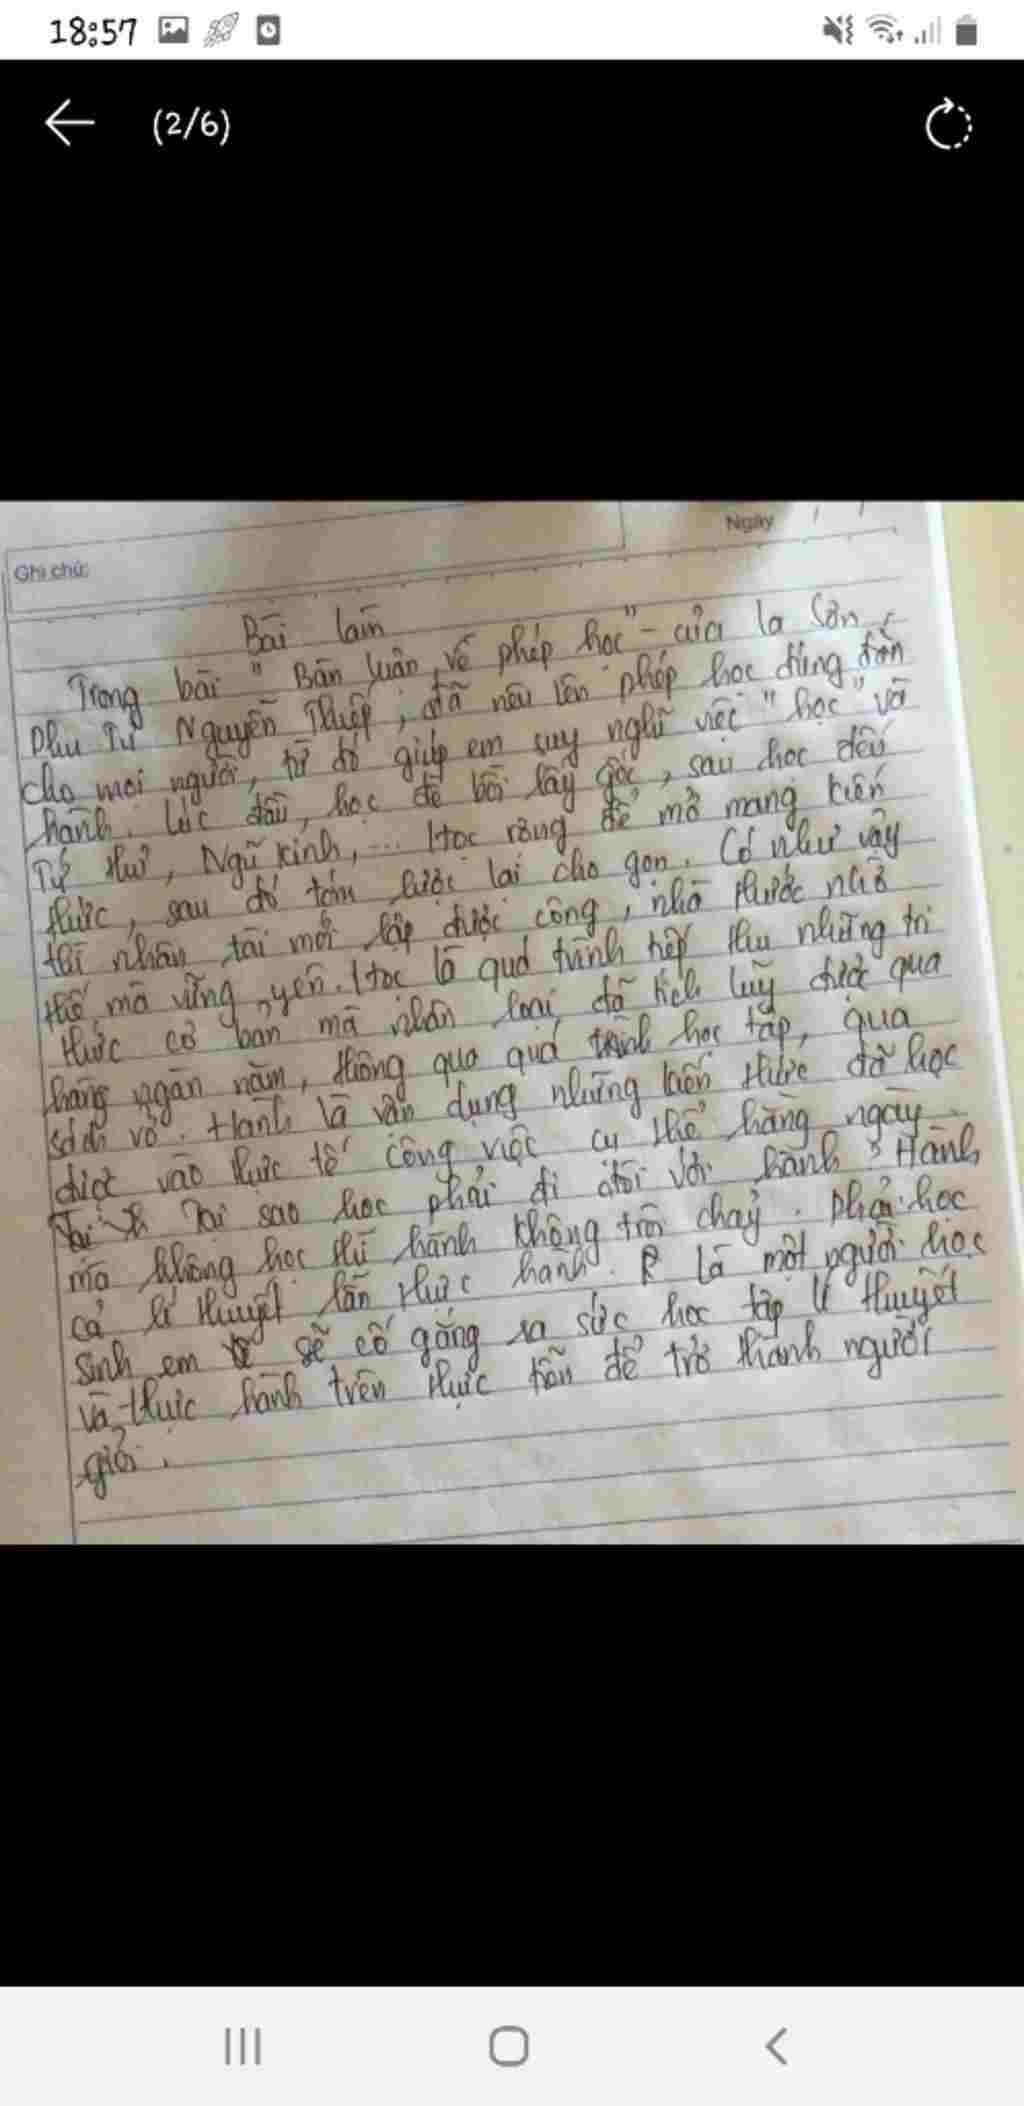 18:57
(2/6)
Ngày
Ghi chú:
Bài làm
Trong bài " Bàn luận về phép học" - của La Sơn
Phu Tử Nguyễn Thiếp, đã nêu lên phép học đúng đắn
cho mọi người, từ đó giúp em suy nghĩ việc "học" và
hành. Lúc đầu, học để bồi lấy gốc, sau học đến
Tứ thư, Ngũ kinh,... Học rộng để mở mang kiến
thức, sau đó tóm lược lại cho gọn. Có như vậy
thì nhân tài mới lập được công, nhà nước nhờ
thế mà vững yên. Học là quá trình tiếp thu những tri
thức cơ bản mà nhân loại đã tích lũy được qua
hàng ngàn năm, thông qua quá trình học tập, qua
sách vở. Hành là vận dụng những kiến thức đã học
được vào thực tế công việc cụ thể hằng ngày.
Tại sao học phải đi đôi với hành? Hành
mà không học thì hành không trôi chảy. Phải học
cả lí thuyết lẫn thực hành. Là một người học
sinh em sẽ cố gắng ra sức học tập lí thuyết
và thực hành trên thực tiễn để trở thành người
giỏi.